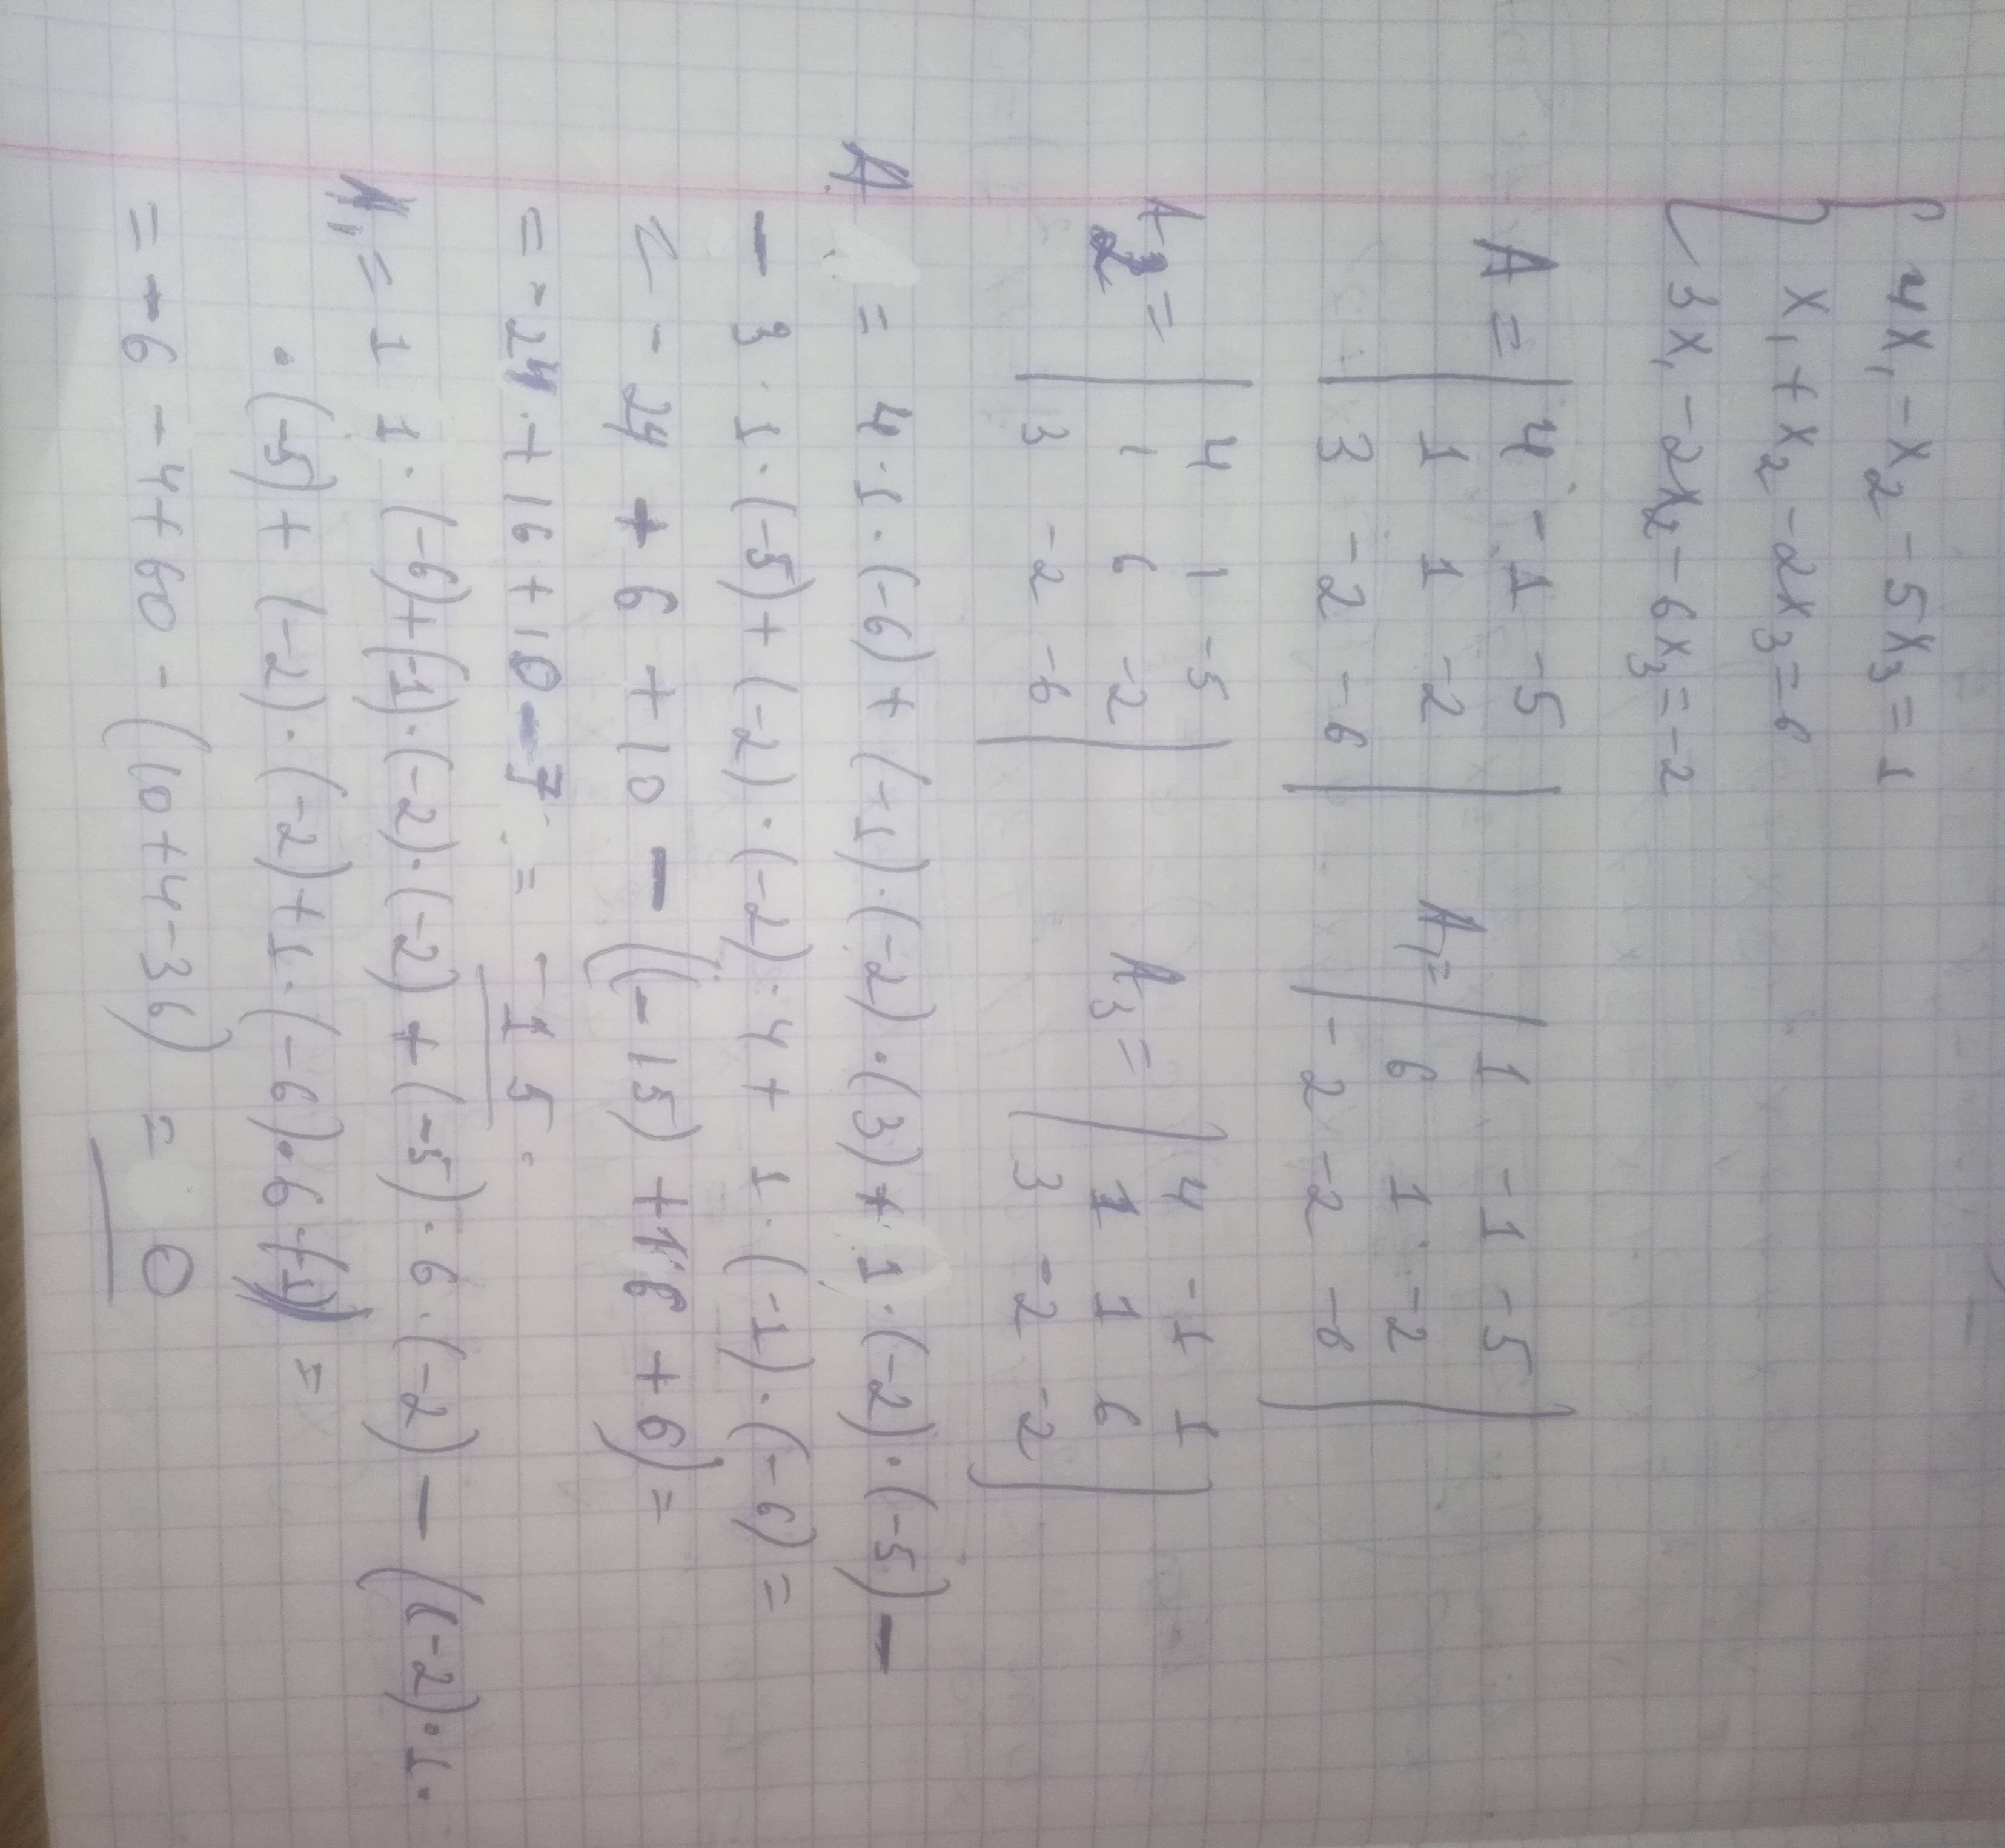 4x₁ - x₂ - 5x₃ = 1
x₁ + x₂ - 2x₃ = 6
3x₁ - 2x₂ - 6x₃ = -2
A = | 4 -1 -5 |
| 1 1 -2 |
| 3 -2 -6 |
A₁ = | 1 -1 -5 |
| 6 1 -2 |
| -2 -2 -6 |
A₂ = | 4 1 -5 |
| 1 6 -2 |
| 3 -2 -6 |
A₃ = | 4 -1 1 |
| 1 1 6 |
| 3 -2 -2 |
A = 4·1·(-6)+(-1)·(-2)·(3)+1·(-2)·(-5) -
- 3·1·(-5)+(-2)·(-2)·4+ 1·(-1)·(-6) =
= - 24 + 6 + 10 - ((-15) + 16 + 6) =
= -24 + 16 + 10 - 7 = -15
A₁ = 1 1·(-6)+(-1)·(-2)·(-2)+(-5)·6·(-2) - ((-2)·1·
·(-5)+(-2)·(-2)+1·(-6)·6·(-1)) =
= -6 - 4 + 60 - (10+4-36) = 0